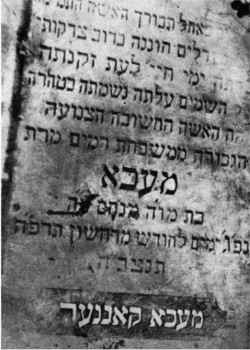 אהל הבורך האשה
דלים חוננה ברוב צדקותי
ימי חיי׳ לעת זקנותה
השמים עלתה נשמתה בטהרה
האשה החשובה הצנועה
הגבורה ממשפחת רמים מרת
מעכא
בת מו״ה
נפ׳ ימים לחודש מרחשון תרפ״ה
תנצב״ה
מעכא קאננער